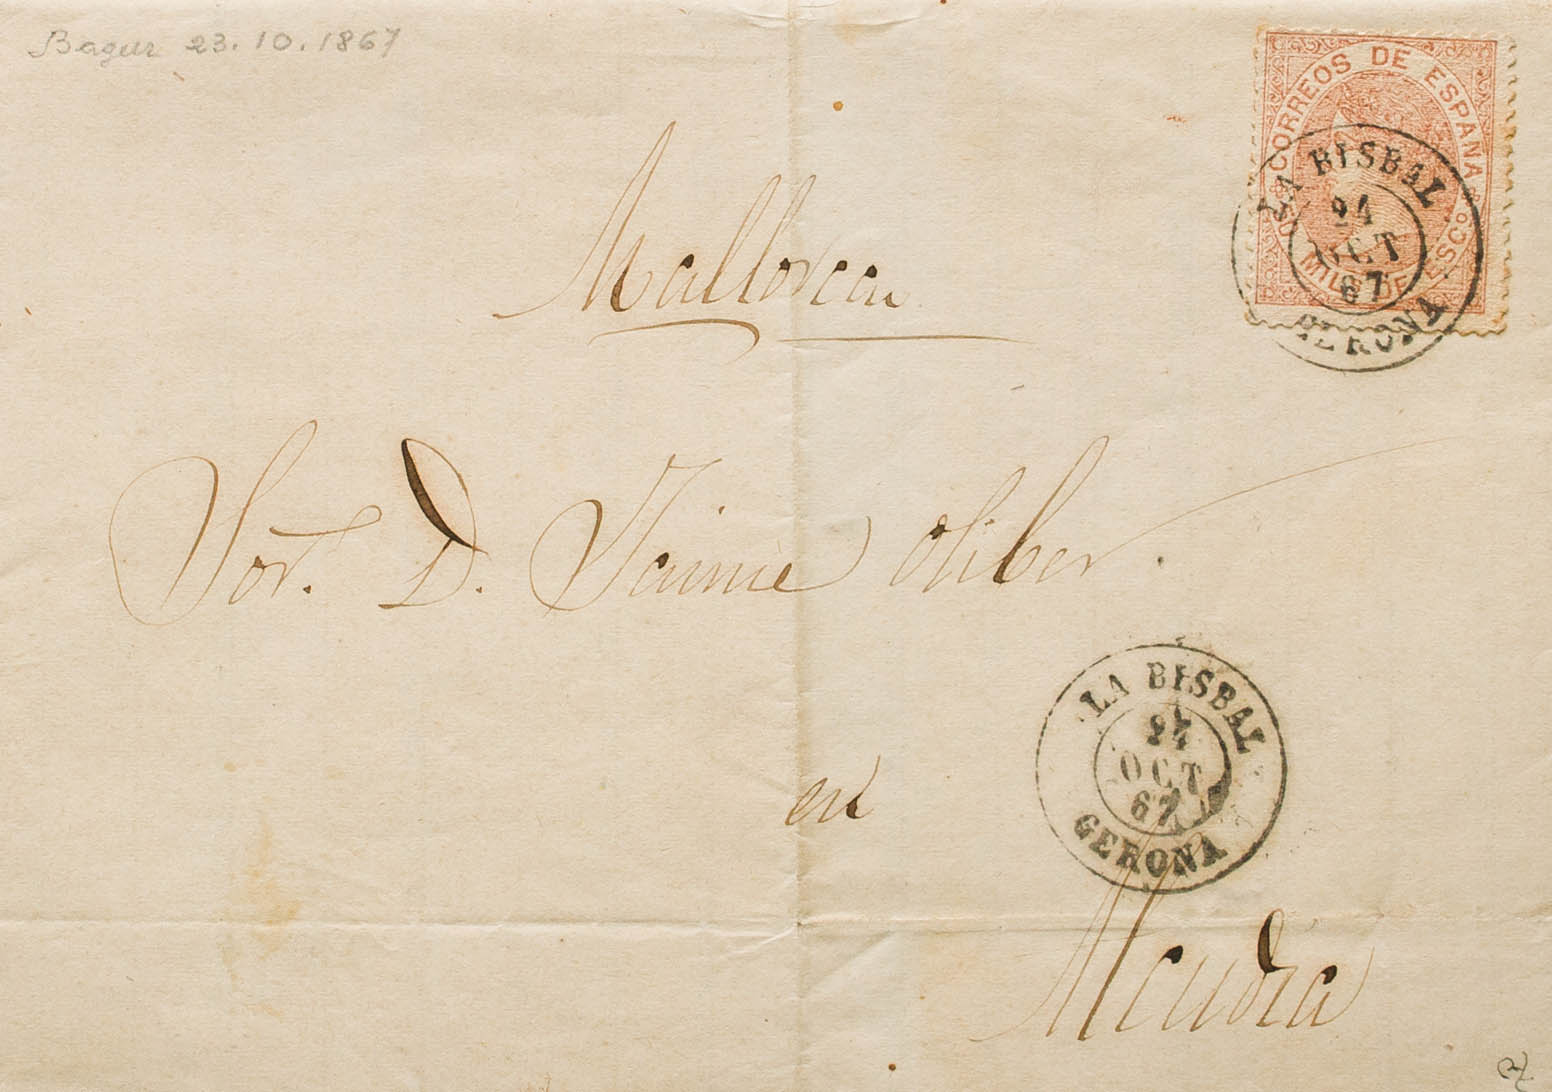 Bagur 23.10.1867
CORREOS DE ESPAÑA
50 MILs DE ESCo
LA BISBAL
24
OCT
67
GERONA
Mallorca
Sor. D. Jaime Oliber
en
LA BISBAL
24
OCT
67
GERONA
Alcudia